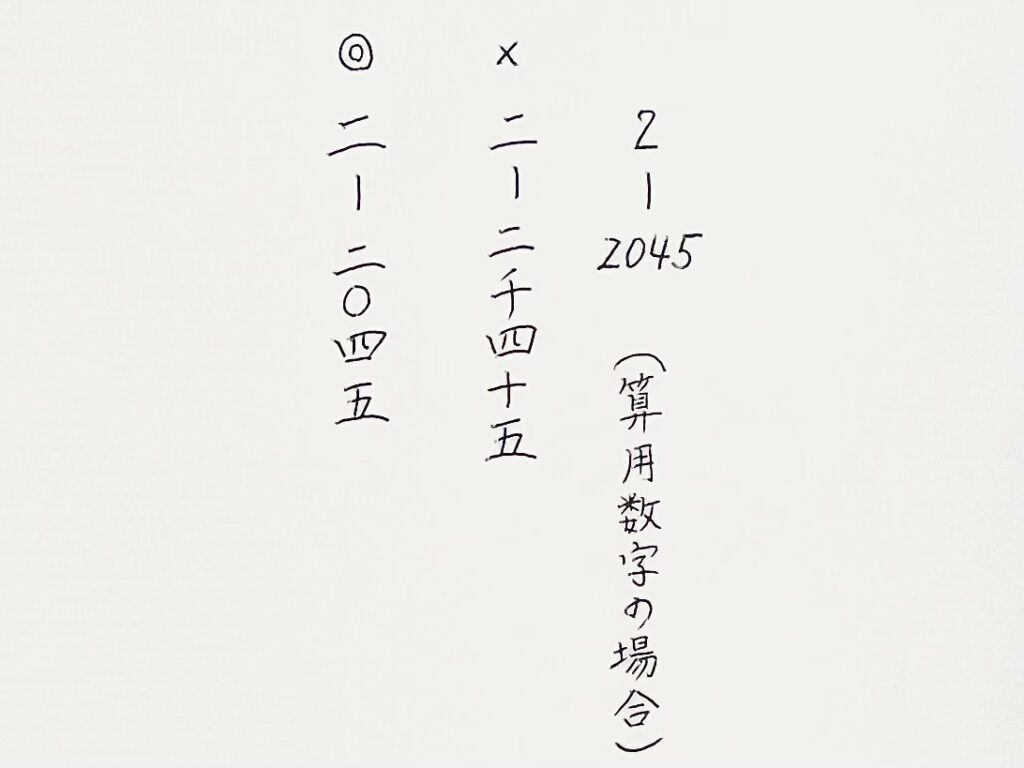 2-2045 (算用数字の場合)
× 二-二千四十五
◎ 二-二〇四五